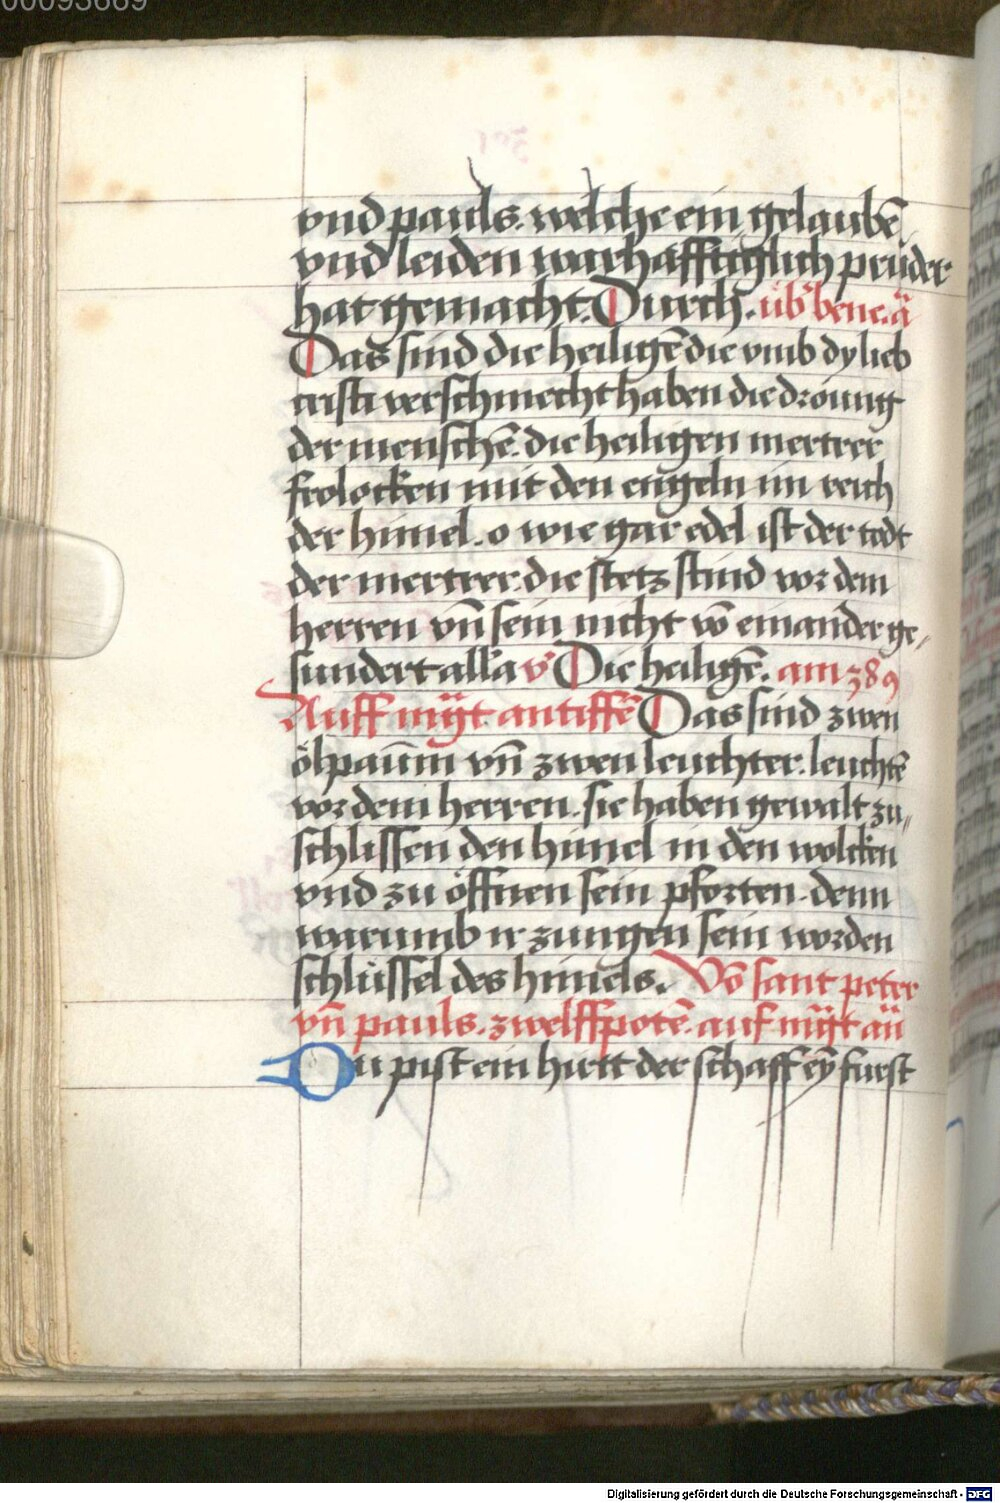 00093669
vnd pauls. welche ein gelaubē
vnd leiden warhafftiglich prüder
hat gemacht. Durch. üb' bene. ā
Das sind die heiligē die vmb dy lieb
cristi verschmecht haben die droung
der menschē. die heiligen mertrer
frolocken mit den engeln im reich
der himel. o wie gar edel ist der todt
der mertrer. die stetz stind vor dem
herren vn̄ sein nicht vō einander ge„
sundert alla v' Die heiligē. am 389
Auff mgt antiffē Das sind zwen
ölpaūm vn̄ zwen leuchter. leuchtē
vor dem herren. sie haben gewalt zu„
schlissen den himel in den wolcken
vnd zu öffnen sein pforten. denn
warumb ir zungen sein worden
schlüssel des himels. Vō sant peter
vn̄ pauls. zwelffpotē. auf mgt an̄
Du pist ein hirtt der schaff eȳ furst
Digitalisierung gefördert durch die Deutsche Forschungsgemeinschaft - DFG